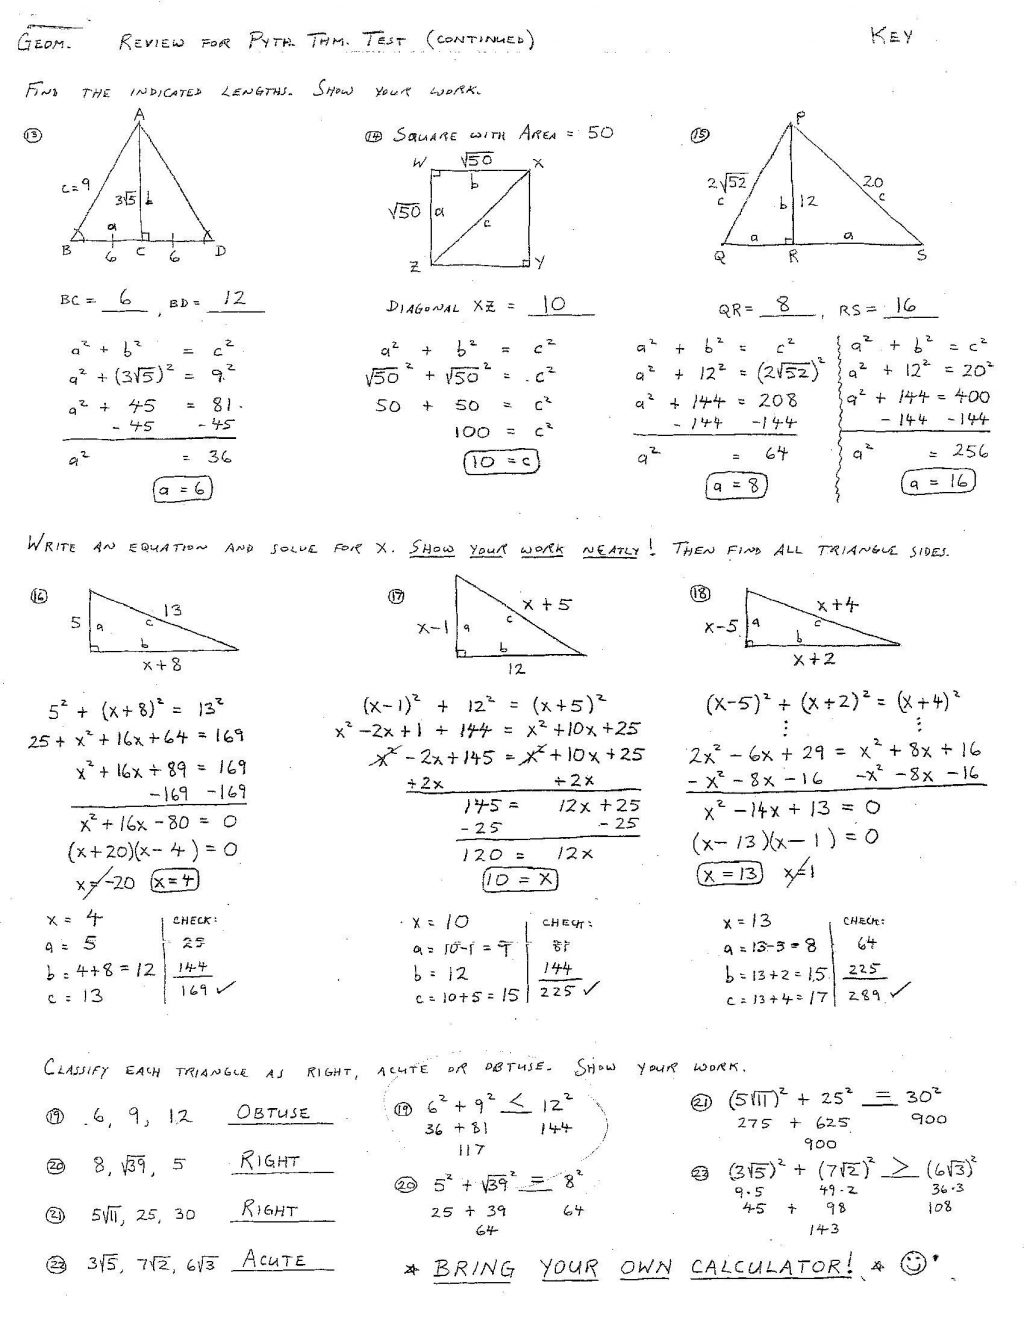 GEOM. REVIEW FOR PYTH. THM. TEST (CONTINUED) KEY
FIND THE INDICATED LENGTHS. SHOW YOUR WORK.
⑬ A
c=9 3√5 b
a
B 6 C 6 D
BC = 6, BD = 12
a² + b² = c²
a² + (3√5)² = 9²
a² + 45 = 81
- 45 -45
a² = 36
a = 6
⑭ SQUARE WITH AREA = 50
W √50 X
b
√50 a c
Z Y
DIAGONAL XZ = 10
a² + b² = c²
√50² + √50² = c²
50 + 50 = c²
100 = c²
10 = c
⑮ P
2√52 20
c b 12 c
a a
Q R S
QR = 8, RS = 16
a² + b² = c²
a² + 12² = (2√52)²
a² + 144 = 208
- 144 -144
a² = 64
a = 8
a² + b² = c²
a² + 12² = 20²
a² + 144 = 400
- 144 -144
a² = 256
a = 16
WRITE AN EQUATION AND SOLVE FOR X. SHOW YOUR WORK NEATLY! THEN FIND ALL TRIANGLE SIDES.
⑯ 13
5 a c
b
x+8
5² + (x+8)² = 13²
25 + x² + 16x + 64 = 169
x² + 16x + 89 = 169
-169 -169
x² + 16x - 80 = 0
(x+20)(x-4) = 0
x = -20 x = 4
x = 4
a = 5
b = 4+8 = 12
c = 13
CHECK:
25
144
169 ✓
⑰ x+5
x-1 a c
b
12
(x-1)² + 12² = (x+5)²
x² - 2x + 1 + 144 = x² + 10x + 25
x² - 2x + 145 = x² + 10x + 25
+2x +2x
145 = 12x + 25
- 25 - 25
120 = 12x
10 = x
x = 10
a = 10-1 = 9
b = 12
c = 10+5 = 15
CHECK:
81
144
225 ✓
⑱ x+4
x-5 a c
b
x+2
(x-5)² + (x+2)² = (x+4)²
⋮ ⋮
2x² - 6x + 29 = x² + 8x + 16
- x² - 8x - 16 -x² - 8x - 16
x² - 14x + 13 = 0
(x-13)(x-1) = 0
x = 13 x=1
x = 13
a = 13-5 = 8
b = 13+2 = 15
c = 13+4 = 17
CHECK:
64
225
289 ✓
CLASSIFY EACH TRIANGLE AS RIGHT, ACUTE OR OBTUSE. SHOW YOUR WORK.
⑲ 6, 9, 12 OBTUSE
⑳ 8, √39, 5 RIGHT
㉑ 5√11, 25, 30 RIGHT
㉒ 3√5, 7√2, 6√3 ACUTE
⑲ 6² + 9² < 12²
36 + 81 144
117
⑳ 5² + √39² = 8²
25 + 39 64
64
㉑ (5√11)² + 25² = 30²
275 + 625 900
900
㉒ (3√5)² + (7√2)² > (6√3)²
9·5 49·2 36·3
45 + 98 108
143
* BRING YOUR OWN CALCULATOR! * ☺